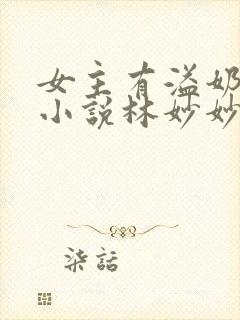 女主有溢奶
小說林妙妙
柒話